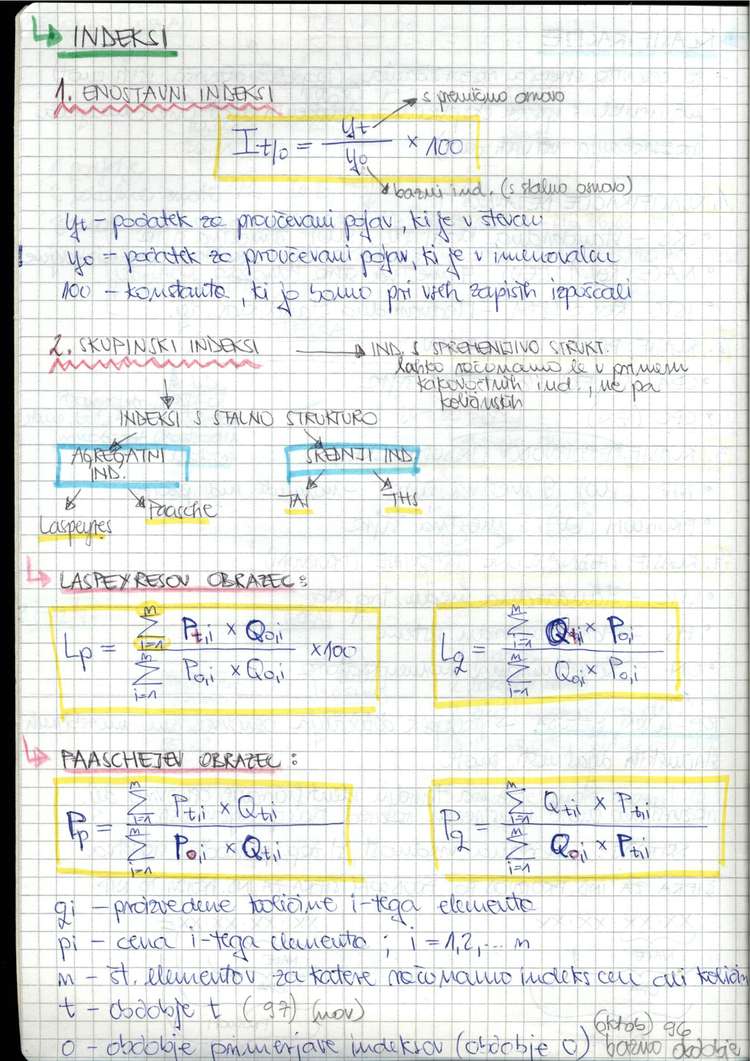 ↳ INDEKSI
1. ENOSTAVNI INDEKSI
s premično osnovo
I t/0 = yt / y0 × 100
bazni ind. (s stalno osnovo)
yt – podatek za proučevani pojav, ki je v števcu
! y0 – podatek za proučevani pojav, ki je v imenovalcu
100 – konstanta, ki jo bomo pri vseh zapisih izpuščali
2. SKUPINSKI INDEKSI → IND. S SPREMENLJIVO STRUKT.
lahko računamo le v primeru
kakovostnih ind., ne pa
količinskih
INDEKSI S STALNO STRUKTURO
AGREGATNI IND. SREDNJI IND
Laspeyres Paasche TAS THS
↳ LASPEYRESOV OBRAZEC:
Lp = ∑ᵐᵢ₌₁ Pt,i × Q0,i / ∑ᵐᵢ₌₁ P0,i × Q0,i ×100
Lq = ∑ᵐᵢ₌₁ Qt,i × P0,i / ∑ᵐᵢ₌₁ Q0,i × P0,i
↳ PAASCHEJEV OBRAZEC:
Pp = ∑ᵐᵢ₌₁ Pt,i × Qt,i / ∑ᵐᵢ₌₁ P0,i × Qt,i
Pq = ∑ᵐᵢ₌₁ Qt,i × Pt,i / ∑ᵐᵢ₌₁ Q0,i × Pt,i
qi – proizvedene količine i-tega elementa
pi – cena i-tega elementa; i = 1,2,... m
m – št. elementov za katere računamo indeks cen ali količin
t – obdobje t (97) (nov)
(oktob) 96
0 – obdobje primerjave indeksov (obdobje 0) bazno obdobje